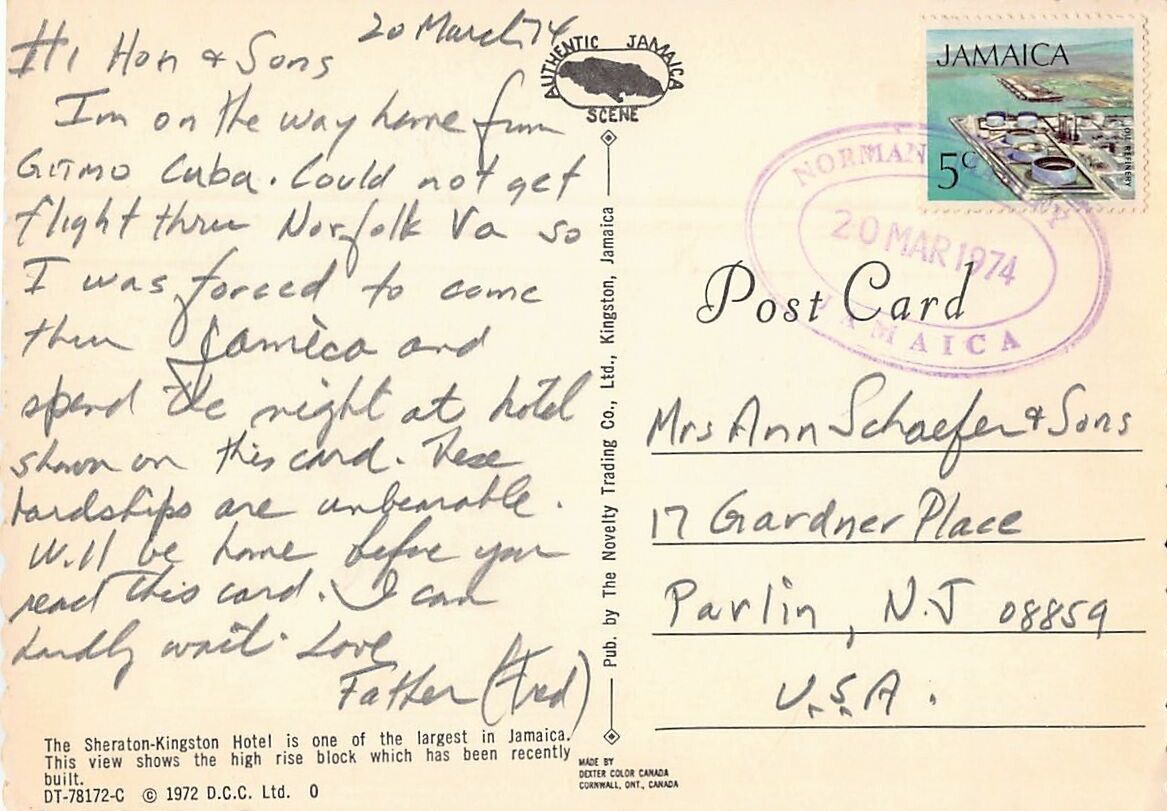 20 March 74
Hi Hon & Sons
Im on the way home from
Gitmo Cuba. Could not get
flight thru Norfolk Va so
I was forced to come
thru Jamica and
spend the night at hotel
shown on this card. These
hardships are unbearable.
Will be home before you
read this card. I can
hardly wait. Love
Father (Fred)
The Sheraton-Kingston Hotel is one of the largest in Jamaica.
This view shows the high rise block which has been recently
built.
DT-78172-C © 1972 D.C.C. Ltd. O
AUTHENTIC JAMAICA
SCENE
Pub. by The Novelty Trading Co., Ltd., Kingston, Jamaica
MADE BY
DEXTER COLOR CANADA
CORNWALL, ONT., CANADA
JAMAICA
5c
OIL REFINERY
NORMAN
20 MAR 1974
JAMAICA
Post Card
Mrs Ann Schaefer & Sons
17 Gardner Place
Parlin, N.J 08859
U.S.A.